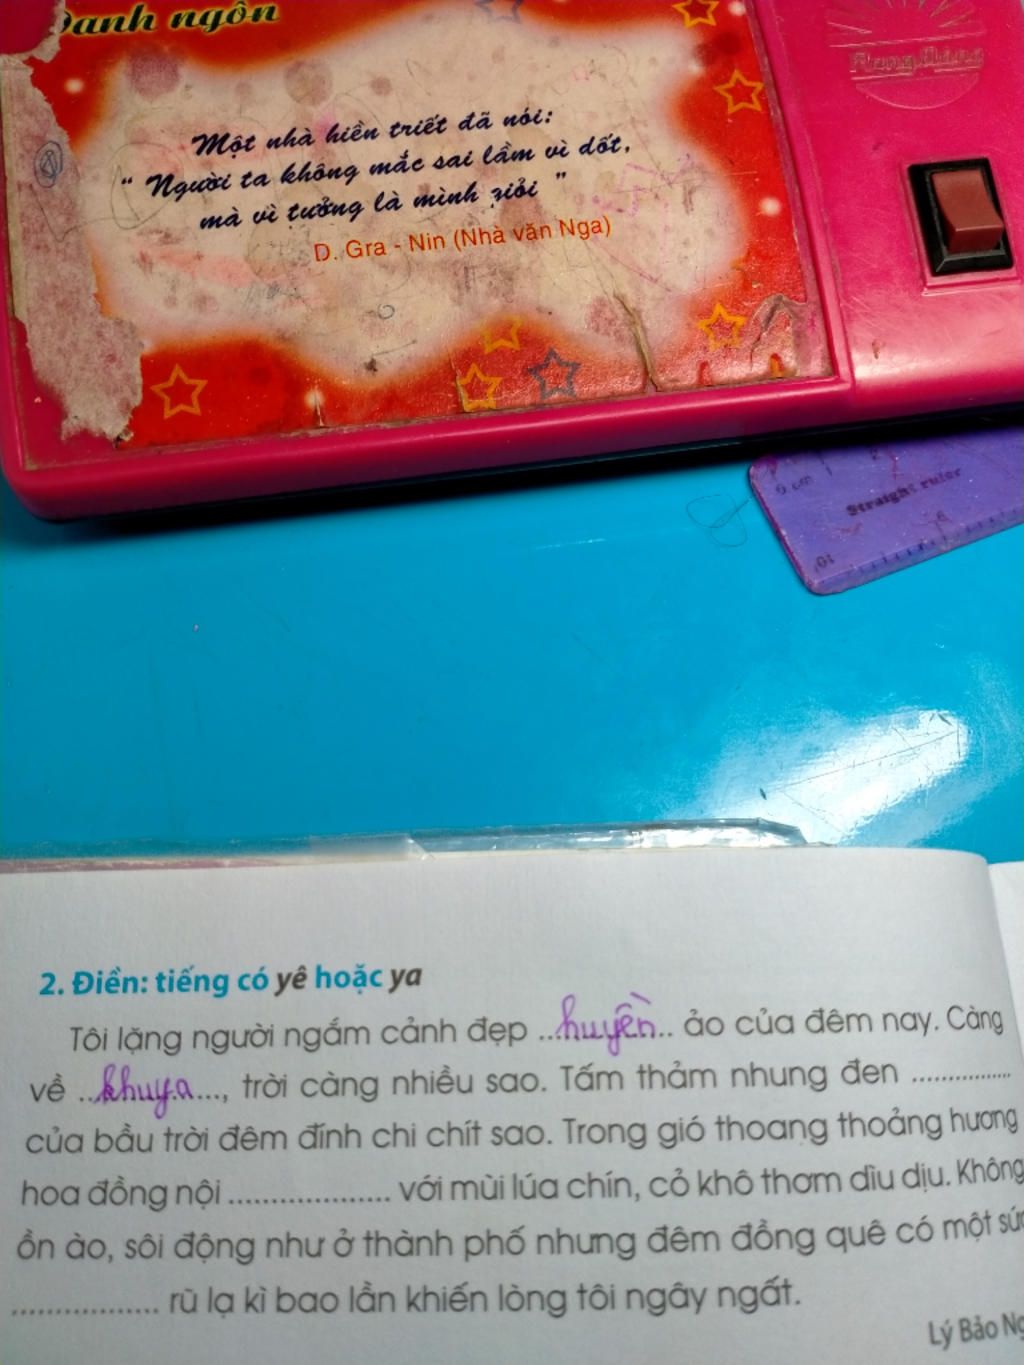 Danh ngôn
Rạng Đông
Một nhà hiền triết đã nói:
“ Người ta không mắc sai lầm vì dốt,
mà vì tưởng là mình giỏi ”
D. Gra - Nin (Nhà văn Nga)
0 cm
Straight ruler
10
2. Điền: tiếng có yê hoặc ya
Tôi lặng người ngắm cảnh đẹp ...huyền.. ảo của đêm nay. Càng
về ..khuya..., trời càng nhiều sao. Tấm thảm nhung đen ...............
của bầu trời đêm đính chi chít sao. Trong gió thoang thoảng hương
hoa đồng nội ................... với mùi lúa chín, cỏ khô thơm dìu dịu. Không
ồn ào, sôi động như ở thành phố nhưng đêm đồng quê có một
................. rũ lạ kì bao lần khiến lòng tôi ngây ngất.
Lý Bảo